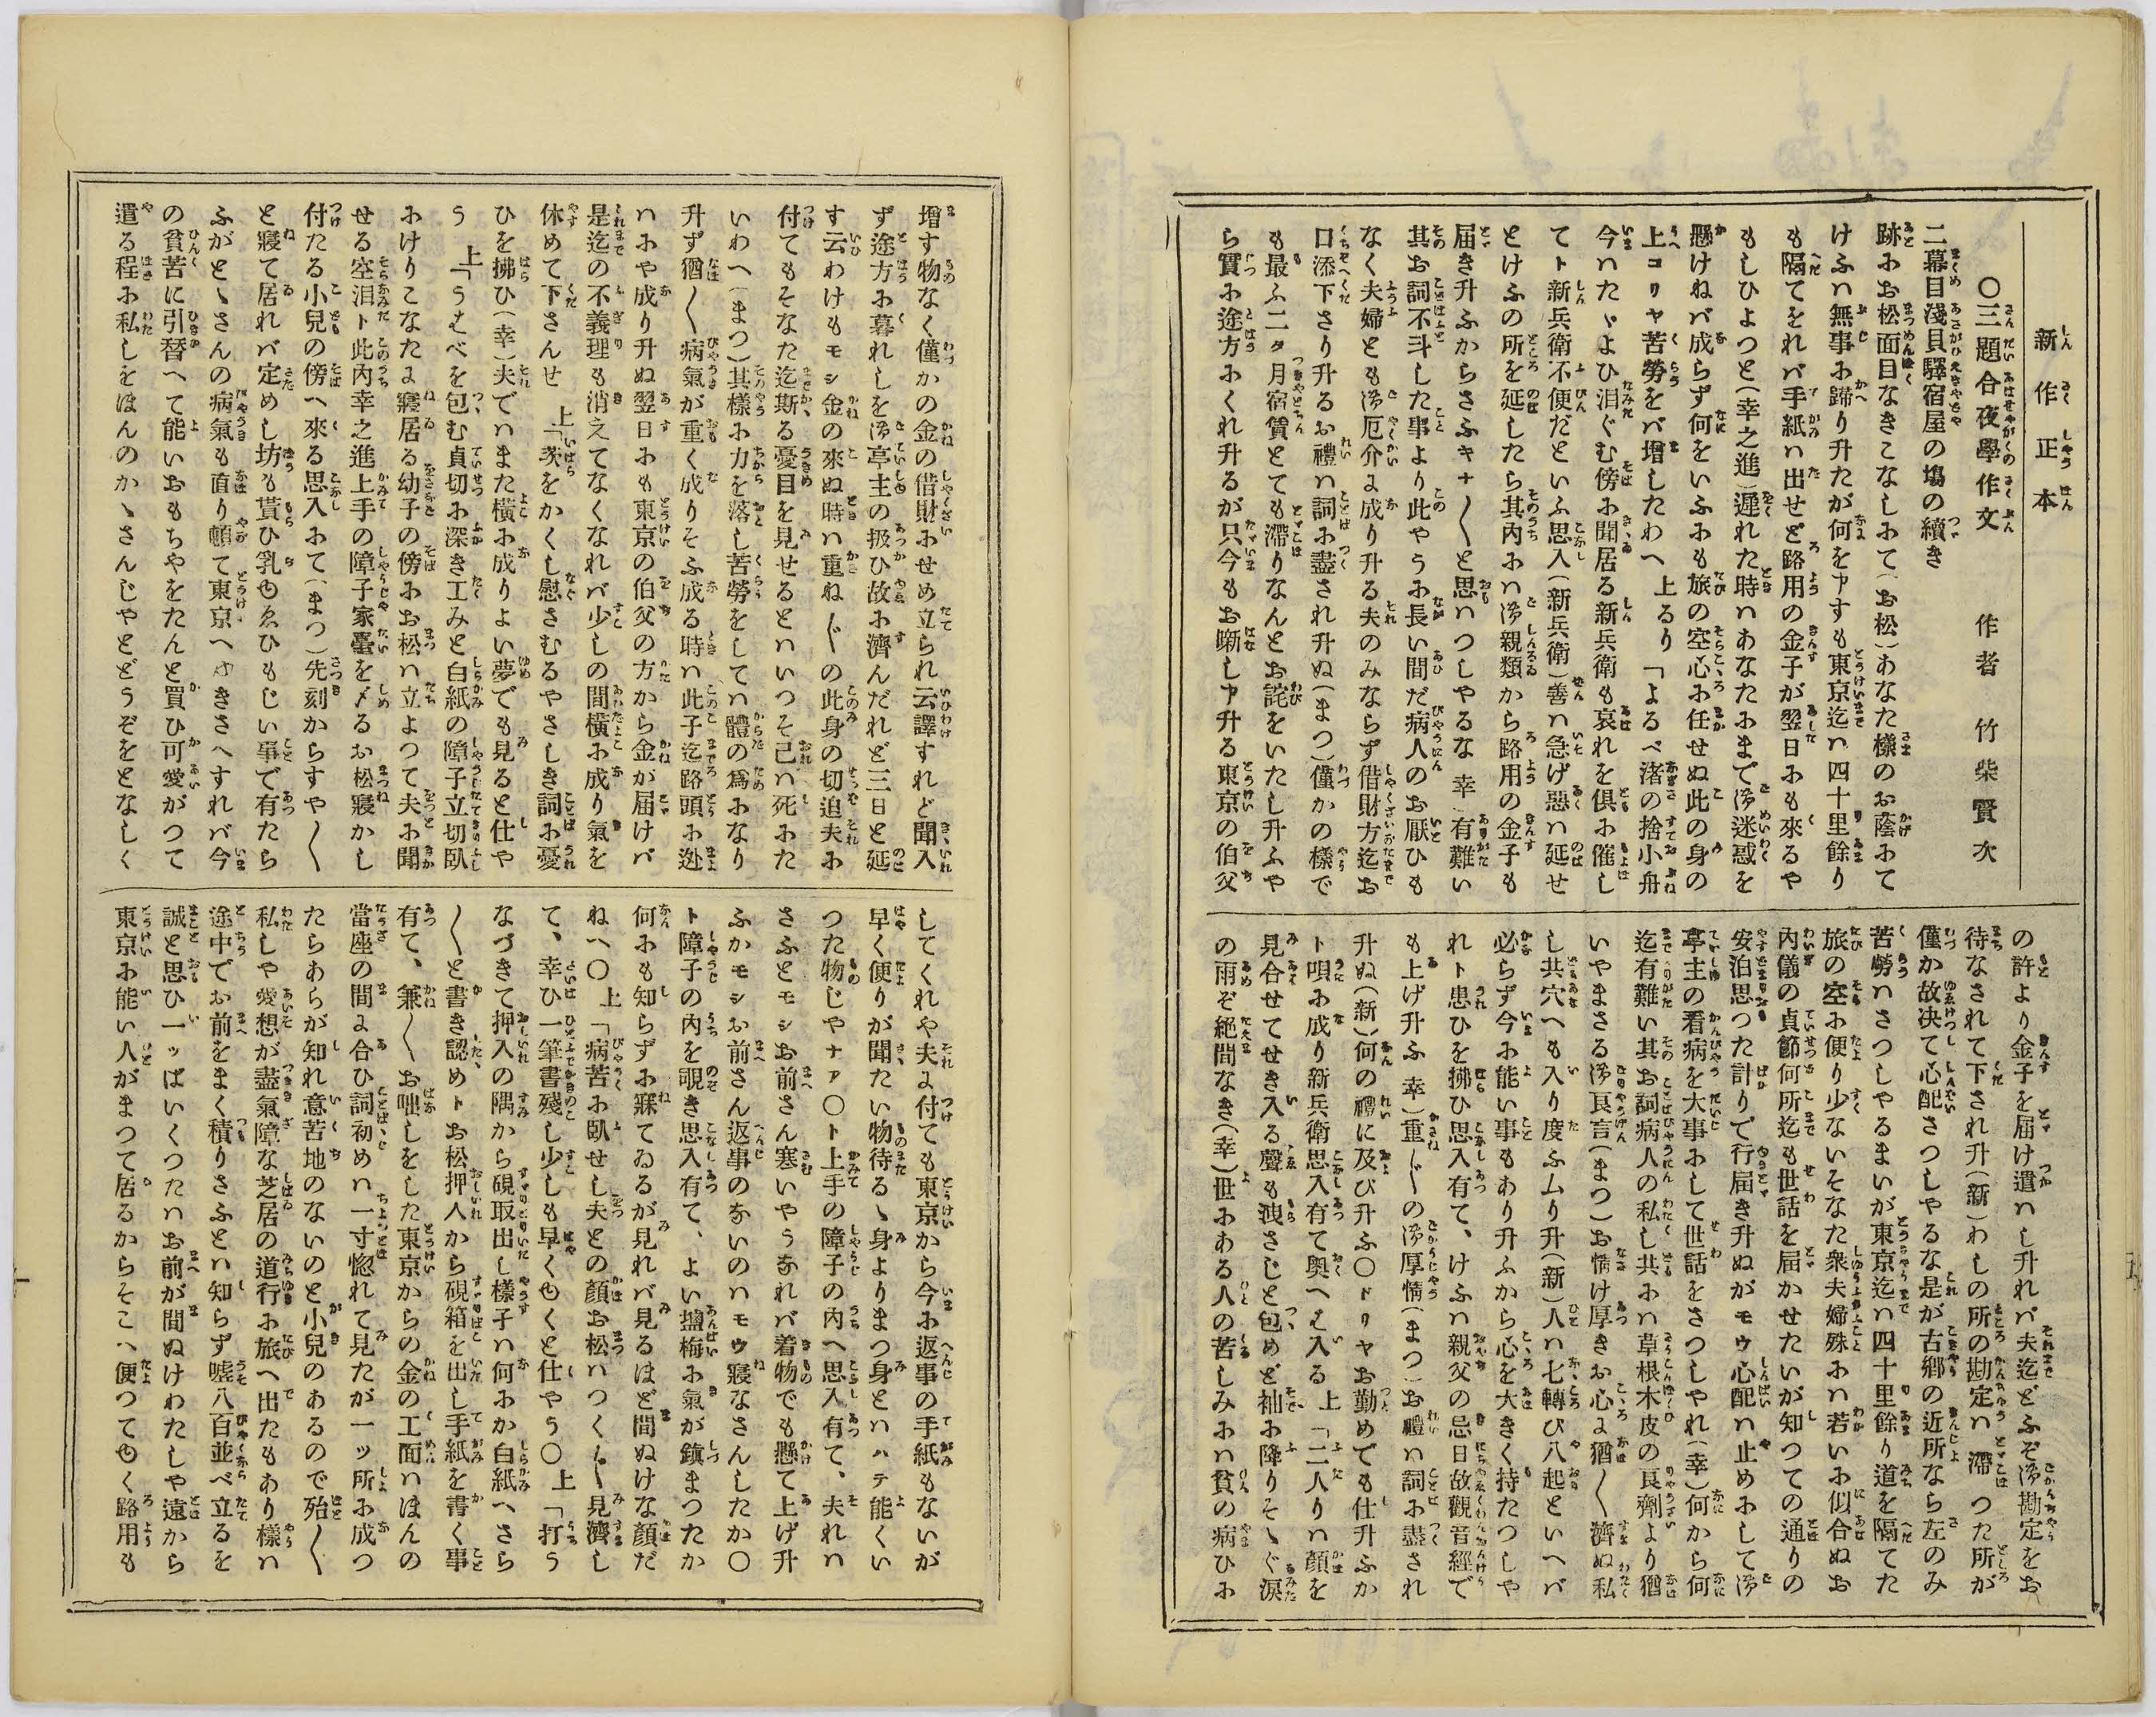 新作正本
〇三題合夜學作文　作者　竹柴賢次
二幕目淺貝驛宿屋の塲の續き
跡ふお松面目なきこなしふて(お松)あなた樣のお蔭ふて
けふハ無事ふ歸り升たが何をヤすも東京迄ハ四十里餘り
も隔てをれバ手紙ハ出せど路用の金子が翌日ふも來るや
もしひよつと(幸之進)遲れた時ハあなたふまで御迷惑を
懸けねバ成らず何をいふふも旅の空心ふ任せぬ此の身の
上コリヤ苦勞をバ增したわへ　上るり「よるべ渚の捨小舟
今ハたゞよひ泪ぐむ傍ふ聞居る新兵衛も哀れを倶ふ催し
てト新兵衛不便だといふ思入(新兵衛)善ハ急げ惡ハ延せ
とけふの所を延したら其內ふハ御親類から路用の金子も
届き升ふからさふキナ〱と思ハつしやるな　幸)有難い
其お詞不斗した事より此やうふ長い間だ病人のお厭ひも
なく夫婦とも御厄介よ成り升る夫のみならず借財方迄お
口添下さり升るお禮ハ詞ふ盡され升ぬ(まつ)僅かの樣で
も最ふ二タ月宿賃とても滯りなんとお詫をいたし升ふや
ら實ふ途方ふくれ升るが只今もお噺しヤ升る東京の伯父
の許より金子を届け遣ハし升れバ夫迄どふぞ御勘定をお
待なされて下され升(新)わしの所の勘定ハ滯つた所が
僅か故决て心配さつしやるな是が古鄕の近所なら左のみ
苦勞ハさつしやるまいが東京迄ハ四十里餘り道を隔てた
旅の空ふ便り少ないそなた衆夫婦殊ふハ若いふ似合ぬお
內儀の貞節何所迄も世話を届かせたいが知つての通りの
安泊思つた計りで行届き升ぬがモウ心配ハ止めふして御
亭主の看病を大事ふして世話をさつしやれ(幸)何から何
迄有難い其お詞病人の私し共ふハ草根木皮の良劑より猶
いやまさる御良言(まつ)お情け厚きお心よ猶〱濟ぬ私
し共穴へも入り度ふムり升(新)人ハ七轉び八起といへバ
必らず今ふ能い事もあり升ふから心を大きく持たつしや
れト患ひを拂ひ思入有て、けふハ親父の忌日故觀音經で
も上げ升ふ　幸)重〴〵の御厚情(まつ)お禮ハ詞ふ盡され
升ぬ(新)何の禮に及び升ふ〇ドリヤお勤めでも仕升ふか
ト唄ふ成り新兵衛思入有て奧へ入る　上「二人りハ顏を
見合せてせき入る聲も洩さじと包めど袖ふ降りそゝぐ淚
の雨ぞ絕間なき(幸)世ふある人の苦しみふハ貧の病ひふ
增す物なく僅かの金の借財ふせめ立られ云譯すれど聞入
ず途方ふ暮れしを御亭主の扱ひ故ふ濟んだれど三日と延
す云わけもモシ金の來ぬ時ハ重ね〴〵の此身の切迫夫ふ
付てもそなた迄斯る憂目を見せるとハいつそ己ハ死ふた
いわへ(まつ)其樣ふ力を落し苦勞をしてハ體の爲ふなり
升ず猶〱病氣が重く成りそふ成る時ハ此子迄路頭ふ迯
ハふや成り升ぬ翌日ふも東京の伯父の方から金が届けバ
是迄の不義理も消えてなくなれバ少しの間橫ふ成り氣を
休めて下さんせ　上「茨をかくし慰さむるやさしき詞ふ憂
ひを拂ひ(幸)夫でハまた橫ふ成りよい夢でも見ると仕や
う　上「うはべを包む貞切ふ深き工みと白紙の障子立切臥
ふけりこなたよ寢居る幼子の傍ふお松ハ立よつて夫ふ聞
せる空泪ト此內幸之進上手の障子家臺を〆るお松寢かし
付たる小兒の傍へ來る思入ふて(まつ)先刻からすや〱
と寢て居れバ定めし坊も貰ひ乳ゆゑひもじい事で有たら
ふがとゝさんの病氣も直り頓て東京へゆきさへすれバ今
の貧苦に引替へて能いおもちやをたんと買ひ可愛がつて
遣る程ふ私しをほんのかゝさんじやとどうぞをとなしく
してくれや夫よ付ても東京から今ふ返事の手紙もないが
早く便りが聞たい物待るゝ身よりまつ身とハハテ能くい
つた物じやナァ〇ト上手の障子の內へ思入有て、夫れハ
さふとモシお前さん寒いやうなれバ着物でも懸て上げ升
ふかモシお前さん返事のないのハモウ寢なさんしたか〇
ト障子の內を覗き思入有て、よい塩梅ふ氣が鎭まつたか
何ふも知らずふ寐てゐるが見れバ見るほど間ぬけな顏だ
ねへ〇　上「病苦ふ臥せし夫との顏お松ハつく〴〵見濟し
て、幸ひ一筆書殘し少しも早くゆくと仕やう〇　上「打う
なづきて押入の隅から硯取出し樣子ハ何ふか白紙へさら
〱と書き認めトお松押人から硯箱を出し手紙を書く事
有て、兼〱お咄しをした東京からの金の工面ハほんの
當座の間よ合ひ詞初めハ一寸惚れて見たが一ッ所ふ成つ
たらあらが知れ意苦地のないのと小兒のあるので殆〱
私しや愛想が盡氣障な芝居の道行ふ旅へ出たもあり樣ハ
途中でお前をまく積りさふとハ知らず噓八百並べ立るを
誠と思ひ一ッぱいくつたハお前が間ぬけわたしや遠から
東京ふ能い人がまつて居るからそこへ便つてゆく路用も